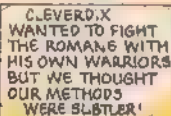 CLEVERDIX
WANTED TO FIGHT
THE ROMANS WITH
HIS OWN WARRIORS
BUT WE THOUGHT
OUR METHODS
WERE SUBTLER!